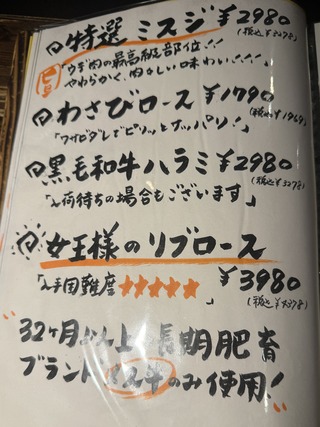 特選 ミスジ ¥2980
(税込¥3278)
「ウデ肉の最高級部位!!
やわらかく、肉々しい味わい!!!」
わさびロース ¥1790
(税込¥1969)
「ワサビダレでピリッとサッパリ!」
黒毛和牛ハラミ ¥2980
(税込¥3278)
「入荷待ちの場合もございます」
女王様のリブロース
「入手困難度★★★★★」
¥3980
(税込¥4378)
32ヶ月以上 長期肥育
ブランド 牛のみ使用!